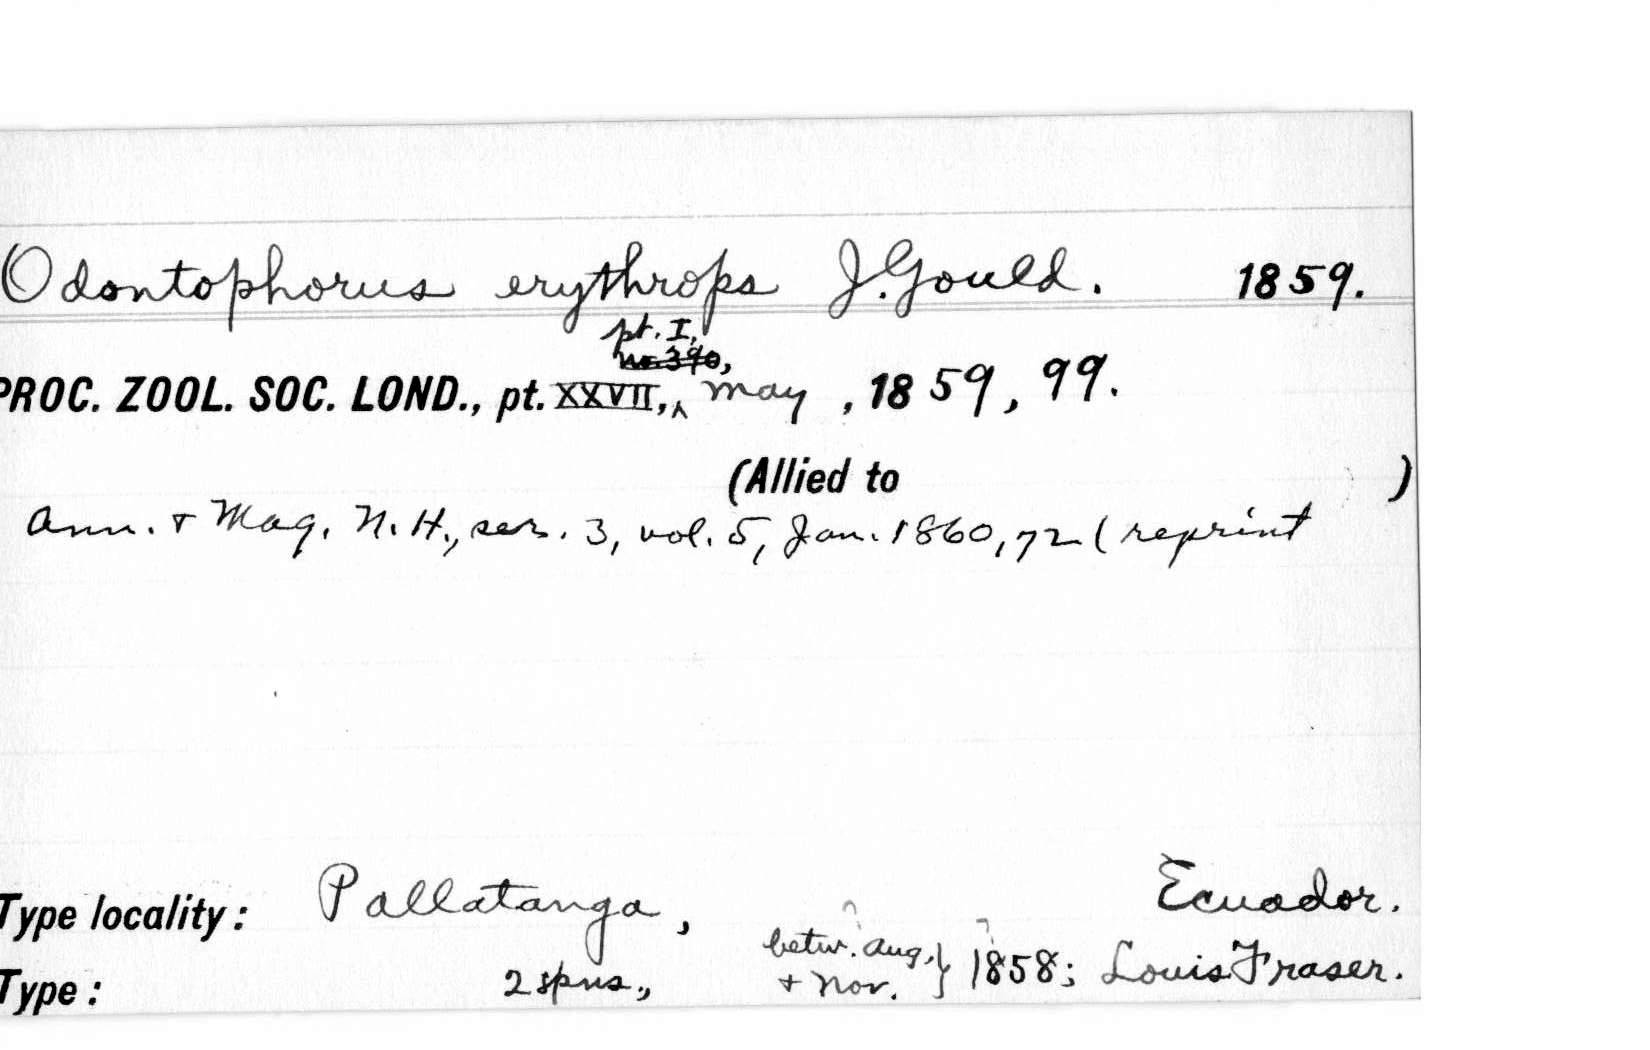 Odontophorus erythrops J. Gould. 1859.
pt. I,
no. 390,
PROC. ZOOL. SOC. LOND., pt. XXVII, ^ May , 1859, 99.
(Allied to )
Ann. + Mag. N.H., ser. 3, vol. 5, Jan. 1860, 72 (reprint
Type locality: Pallatanga, Ecuador.
betw. Aug. } 1858; Louis Fraser.
Type: 2 spns., + Nov.